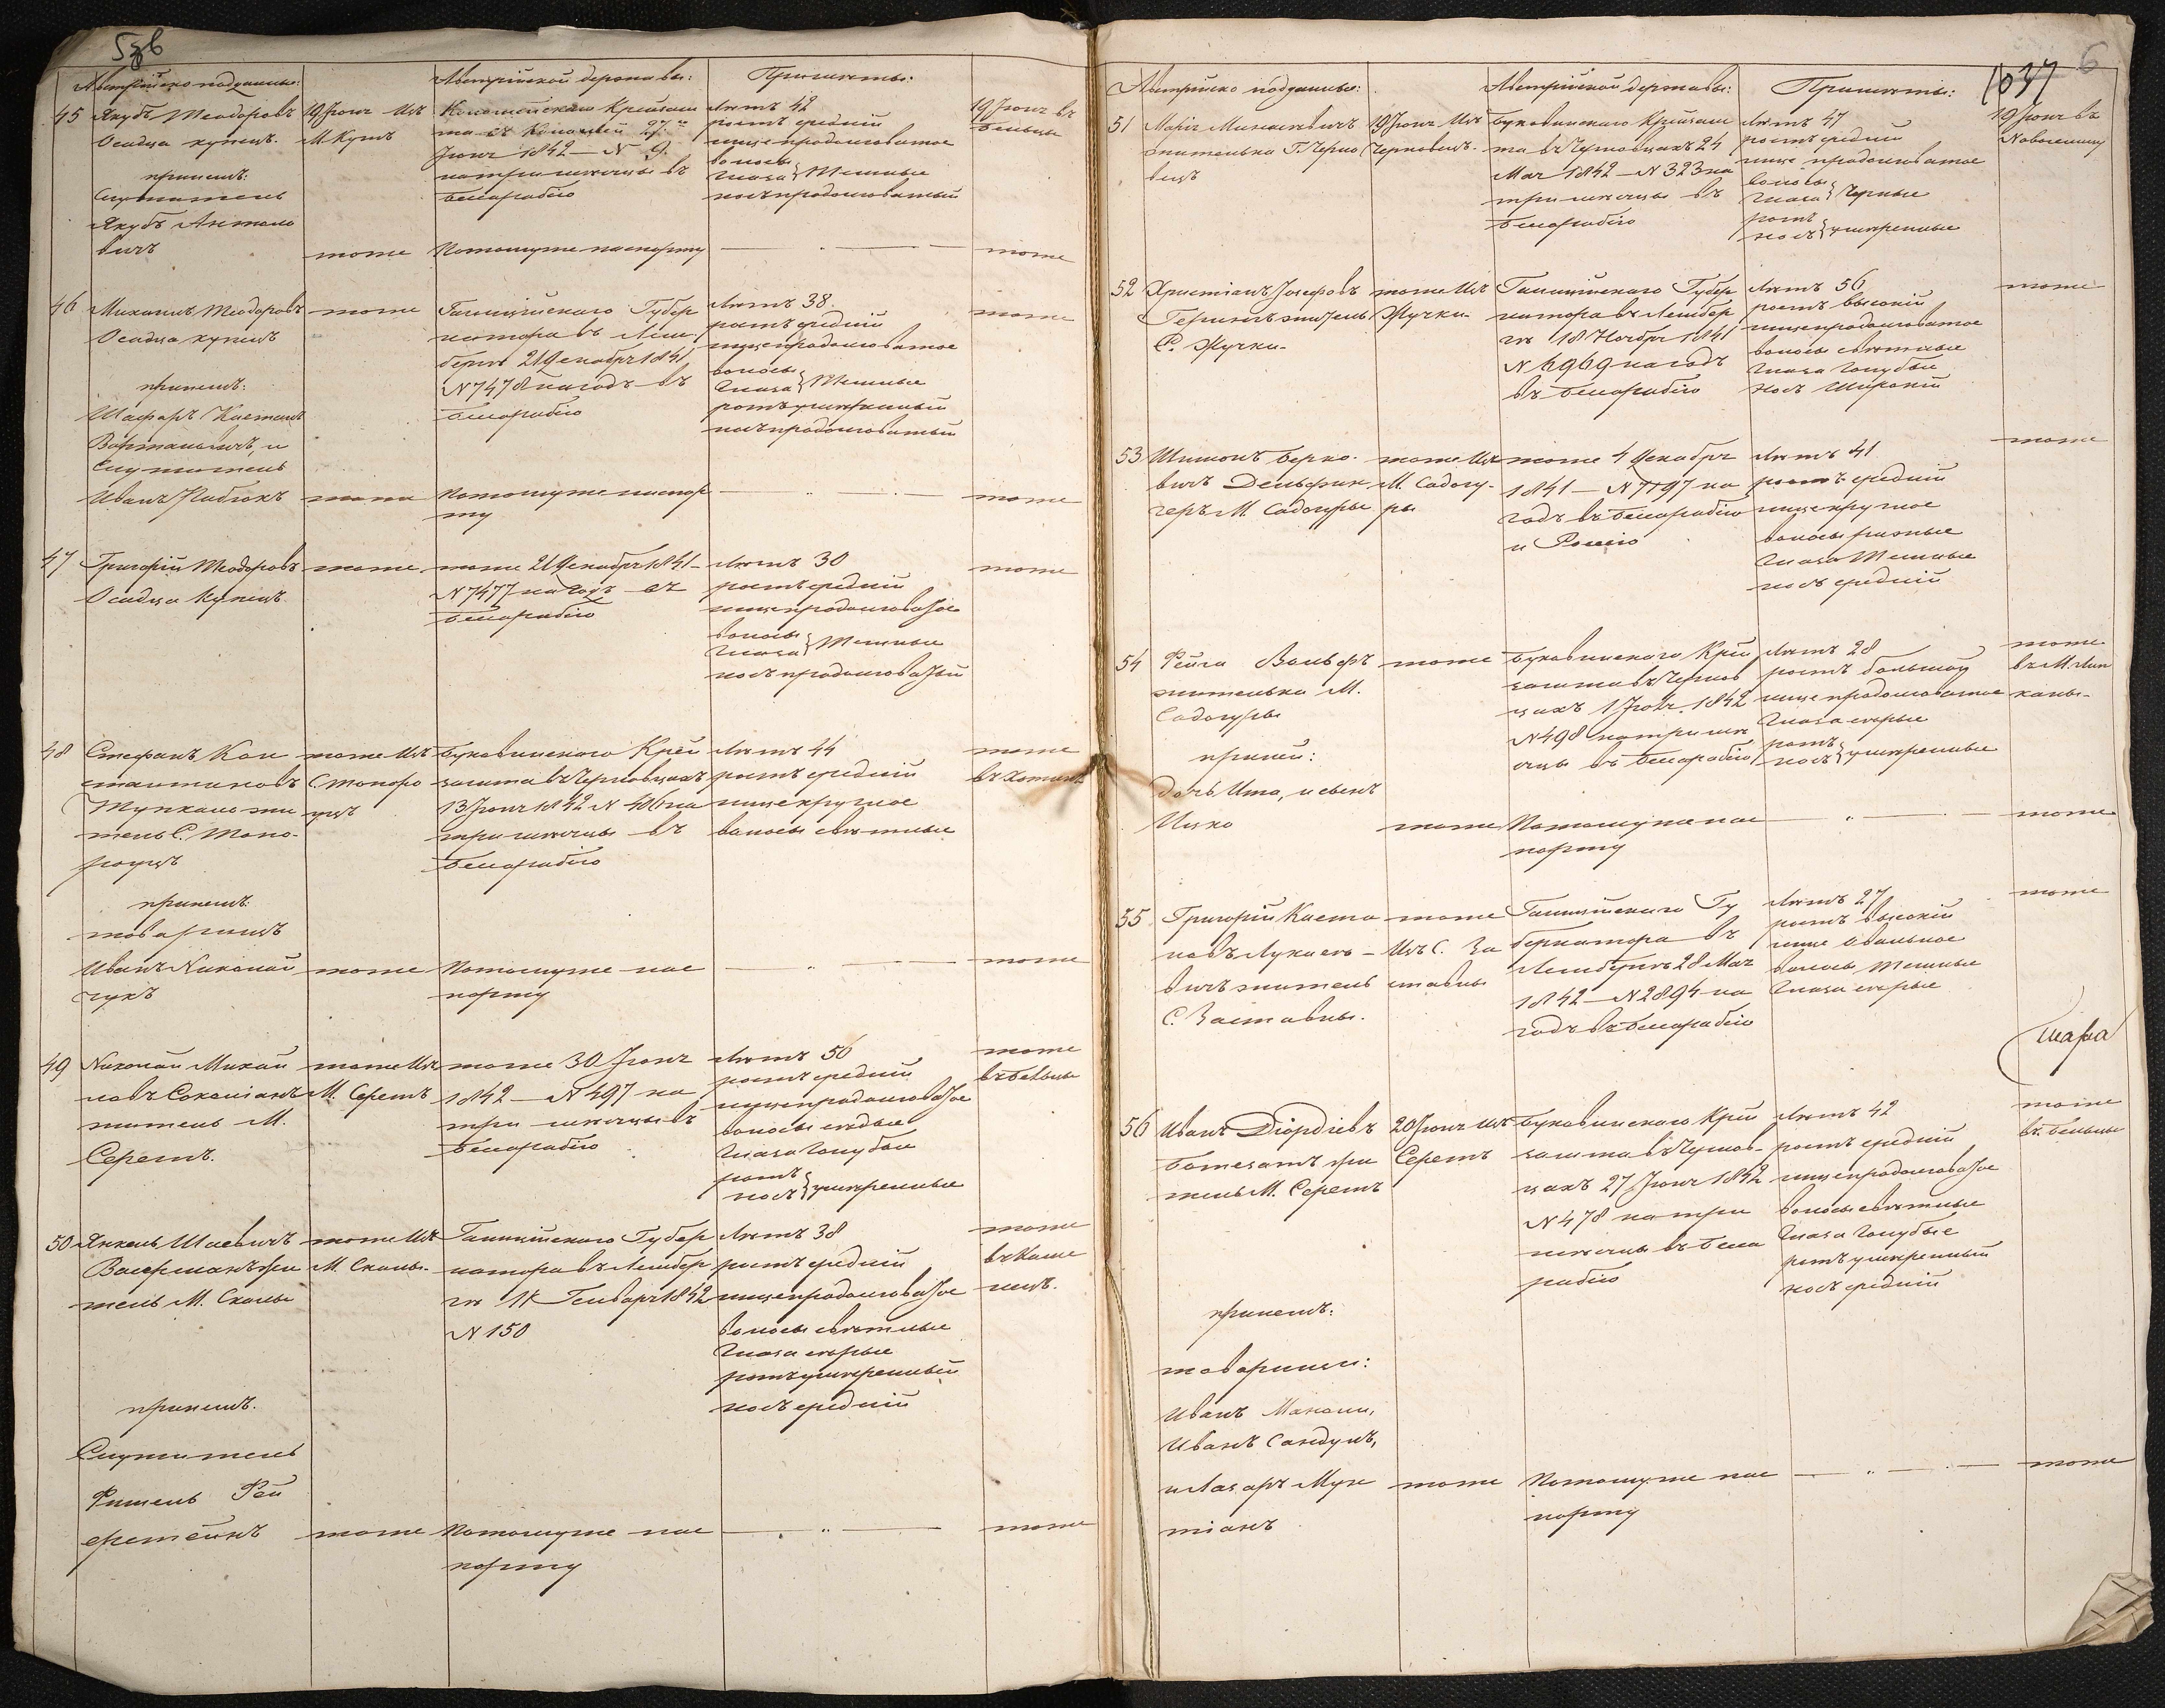 5об
Австрійско подданные:
Австрійской державы:
Примѣты:
45 Якубъ Теодоровъ
Осадца купецъ.
при немъ:
Служитель
Якубъ Антоно
вичъ
19 Іюня Изъ
М. Кутъ
тоже
Коломейскаго Крейзам
та въ Коломей 27го
Іюня 1842 — N 9.
на три мѣсяцы въ
Бесарабію
По томуже паспорту
Лѣтъ 42
ростъ средній
лице продолговатое
волосы
глаза } Темные
носъ продолговатый
19 Іюня въ
Бельцы
тоже
46 Михаилъ Теодоровъ
Осадца купецъ
при немъ:
Вартановичъ, и
Служитель
Иванъ
тоже
тоже
Галиційскаго Губер
натора въ Лем
берги 21 Декабря 1841
N 7478 на годъ въ
Бесарабію
По томуже паспор
ту
Лѣтъ 38.
ростъ средній
лице продолговатое
волосы
глаза } Темные
ротъ умѣренный
носъ продолговатый
тоже
тоже
47 Григорій Теодоровъ
Осадца Купецъ
тоже
тоже 21 Декабря 1841 —
N 7477 на Годъ въ
Бесарабію
Лѣтъ 30
ростъ средній
лице продолговатое
волосы
глаза } Темные
носъ продолговатый
тоже
48 Стефанъ Кон
стантиновъ
жи
тель С. Топо
роуцъ
при немъ:
товарищъ
Иванъ Николай
чукъ
тоже Изъ
С. Топоро
уцъ
тоже
Буковинскаго Крей
замта въ Черновцахъ
13 Іюня 1842 N 406 на
три мѣсяцы въ
Бесарабію
По томуже пас
порту
Лѣтъ 44
ростъ средній
лице круглое
волосы свѣтлые
тоже
въ Хотинъ
тоже
49 Николай Михай
ловъ
житель М.
Серетъ.
тоже Изъ
М. Серетъ
тоже 30 Іюня
1842 — N 497 на
три мѣсяцы въ
Бесарабію
Лѣтъ 50
ростъ средній
лице продолговатое
волосы сѣдые
глаза голубые
ротъ
носъ } умѣренные
тоже
въ Бельцы
50 Янкель Шаевичъ
Васерманъ жи
тель М. Скалы
при немъ.
Служитель
Фишель Рей
ерштейнъ
тоже Изъ
М. Скалы.
тоже
Галиційскаго Губер
натора въ Лембер
гѣ 11 Генваря 1842
N 150
По томуже пас
порту
Лѣтъ 38
ростъ средній
лице продолговатое
волосы свѣтлые
глаза сѣрые
ротъ умѣренный
носъ средній
тоже
въ Каме
нецъ.
тоже
1037
6
Австрійско подданные:
Австрійской державы:
Примѣты:
51 Марія Минкевичъ
жителька Г. Черно
вецъ
19 Іюня Изъ
Черновецъ.
Буковинскаго Крейзам
та въ Черновцахъ 24
Мая 1842 — N 323 на
три мѣсяцы въ
Бесарабію
Лѣтъ 47
ростъ средній
лице продолговатое
волосы
глаза } Черные
ротъ
носъ } умѣренные
19 Іюня въ
Новоселицу
52 Христіанъ Іозефовъ
Герингъ житель
С. Жучки.
тоже Изъ
Жучки
Галиційскаго Губер
натора въ Лембер
гѣ 18 Ноября 1841
N 6969 на годъ
въ Бесарабію
Лѣтъ 56
ростъ высокій
лице продолговатое
волосы свѣтлые
глаза голубые
носъ Широкій
тоже
53 Шимонъ Берко
вичъ
М. Садогуры
тоже Изъ
М. Садогу
ры
тоже 4 Декабря
1841 — N 7197 на
годъ въ Бесарабію
и Россію
Лѣтъ 41
ростъ средній
лице круглое
волосы рыжые
глаза Темные
носъ средній
тоже
54 Рейза Вольфъ
жителька М.
Садогуры
при ней:
дочь Ита, и сынъ
Ицко
тоже
тоже
Буковинскаго Крей
замта въ Чернов
цахъ 1 Іюля 1842
N 498 на три мѣ
сяцы въ Бесарабію
По томуже пас
порту
Лѣтъ 28
ростъ большой
лице продолговатое
глаза сѣрые
ротъ
носъ } умѣренные
тоже
въ М. Лип
каны.
тоже
55 Григорій Каета
новъ Лукасе
вичъ житель
С. Заставны.
тоже
Изъ С. За
ставны
Галиційскаго Гу
бернатора въ
Лембергѣ 28 Мая
1842 — N 2894 на
годъ въ Бесарабію
Лѣтъ 27
ростъ высокій
лице овальное
волосы Темные
глаза сѣрые
тоже
56 Иванъ Діордіевъ
Ботезатъ жи
тель М. Серетъ
при немъ:
товарищи:
Иванъ
Иванъ Сандулъ,
и Лазаръ Мун
тіанъ
20 Іюня Изъ
Серетъ
тоже
Буковинскаго Крей
замта въ Чернов
цахъ 27 Іюня 1842
N 478 на три
мѣсяцы въ Беса
рабію
По томуже пас
порту
Лѣтъ 42
ростъ средній
лице продолговатое
волосы свѣтлые
глаза голубые
ротъ умѣренный
носъ средній
тоже
въ Бельцы
тоже